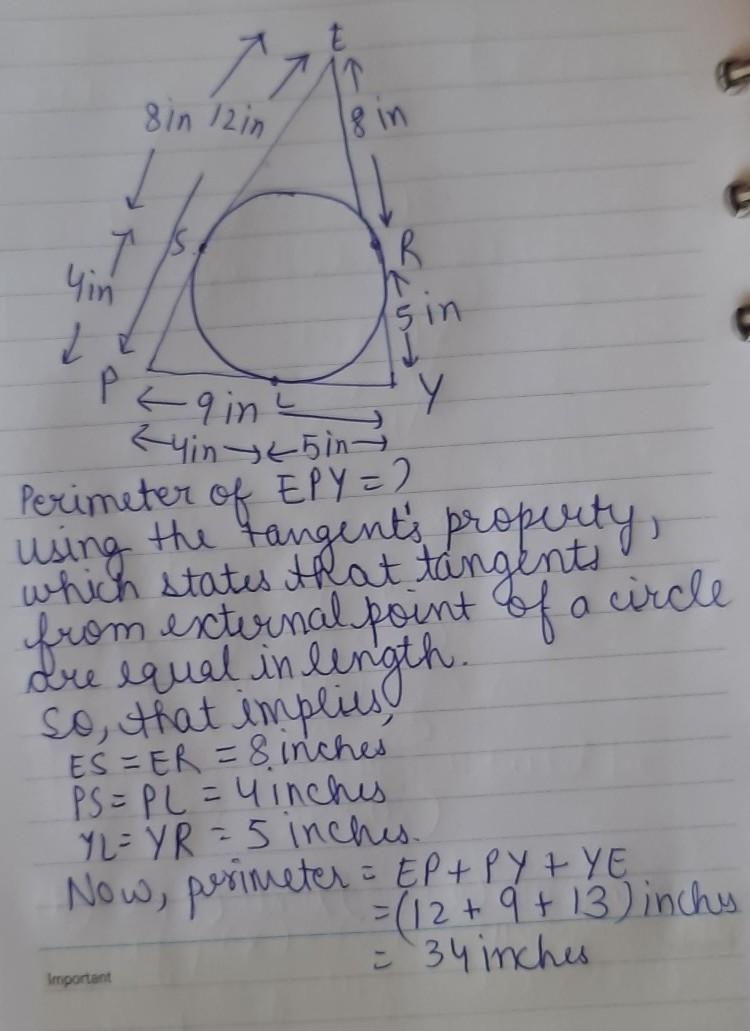 E
8in 12in
8 in
S
R
4in
5 in
P
Y
9 in L
4in 5in
Perimeter of EPY = ?
using the tangent's property,
which states that tangents
from external point of a circle
are equal in length.
So, that implies,
ES = ER = 8 inches
PS = PL = 4 inches
YL = YR = 5 inches.
Now, perimeter = EP + PY + YE
= (12 + 9 + 13) inches
= 34 inches
Important